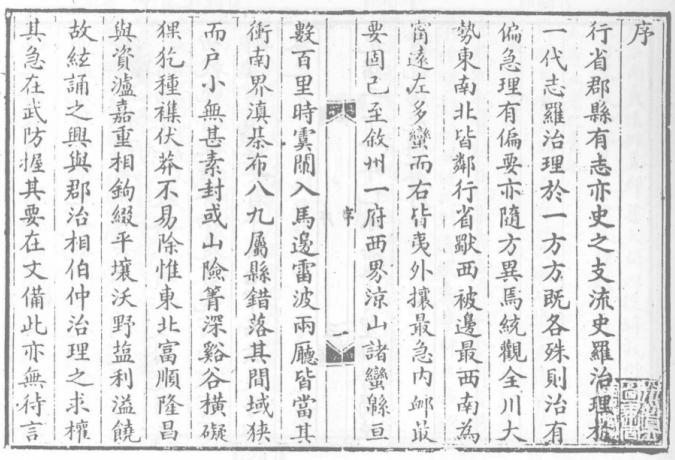 序
行省郡縣有志亦史之支流史羅治理於
一代志羅治理於一方方既各殊則治有
偏急理有偏要亦隨方異焉統觀全川大
勢東南北皆鄰行省獸西被邊最西南為
甯遠左多蠻而右皆夷外攘最急内䘏最
要固已至敘州一府西界涼山諸蠻緜亘
序
一
數百里時虞闌入馬邊雷波兩廳皆當其
衝南界滇棊布八九屬縣錯落其間域狹
而户小無甚素封或山險箐深谿谷橫礙
猓犵種襍伏莽不易除惟東北富順隆昌
與資瀘嘉重相鉤綴平壤沃野鹽利溢饒
故絃誦之興與郡治相伯仲治理之求權
其急在武防握其要在文備此亦無待言